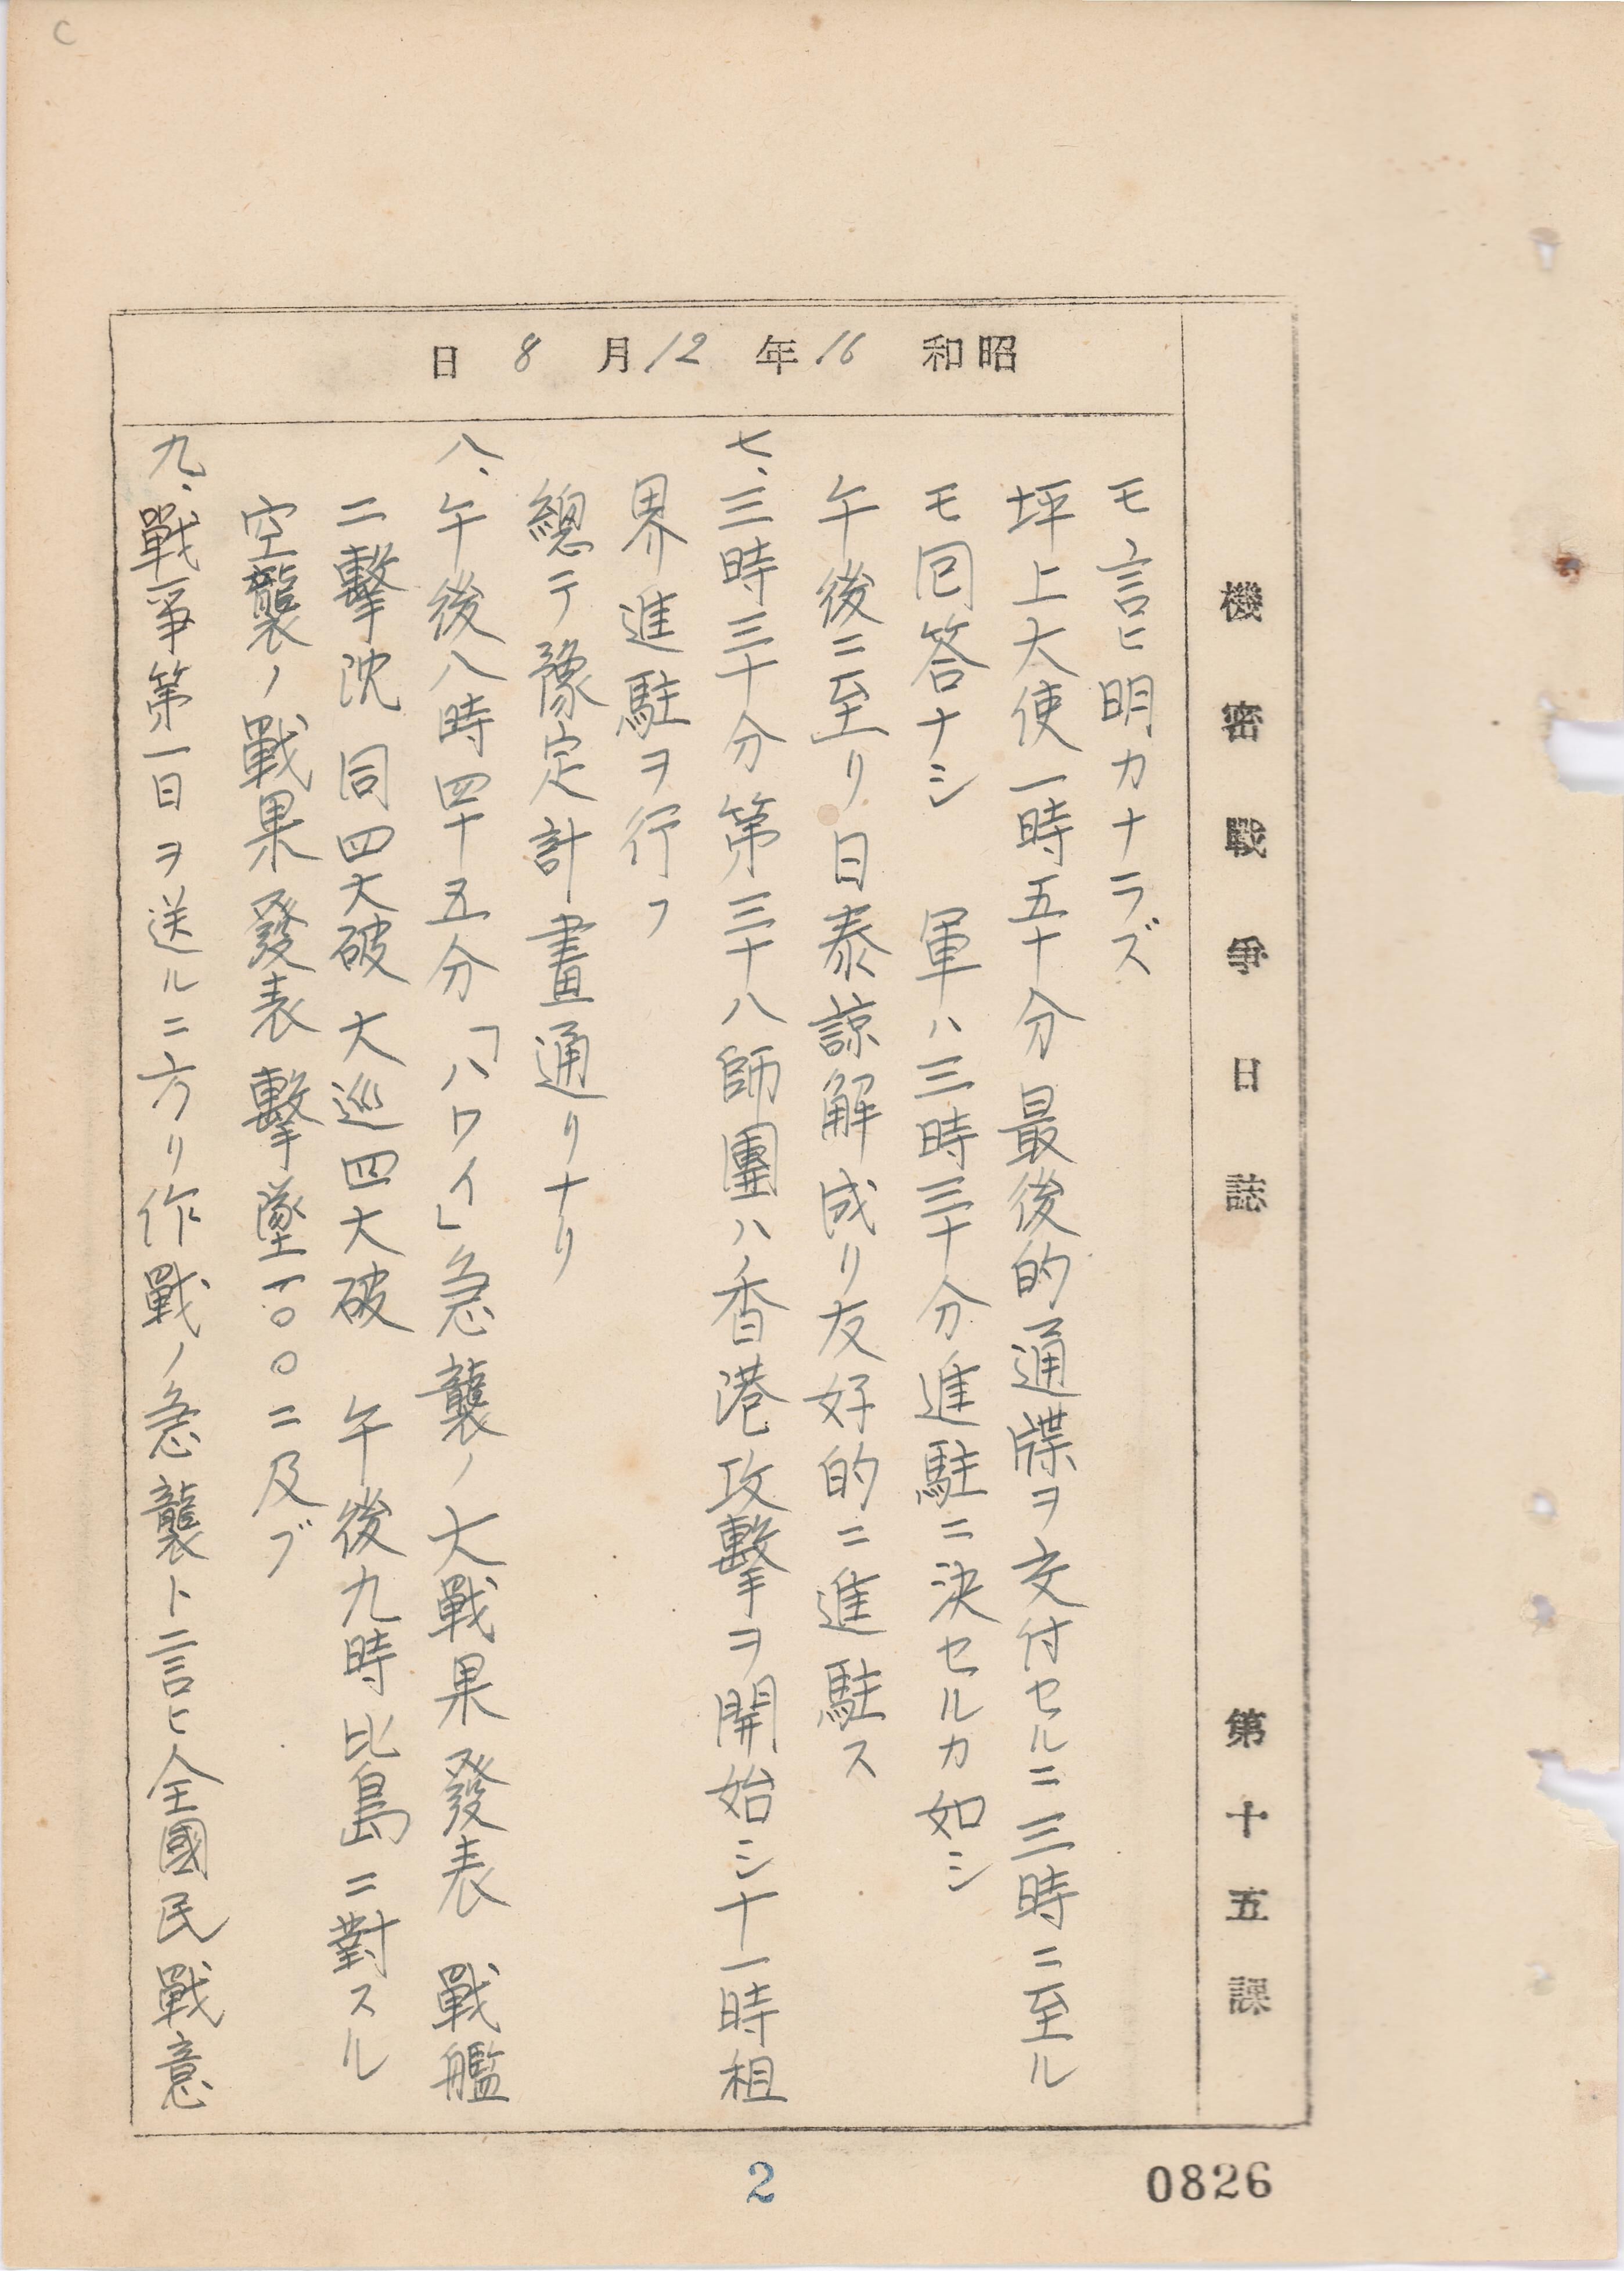 機密戰爭日誌 第十五課
昭和16年12月8日
モ言ヒ明カナラズ
坪上大使一時五十分最後的通牒ヲ交付セルニ三時ニ至ル
モ回答ナシ 軍ハ三時三十分進駐ニ決セルカ如シ
午後ニ至リ日泰諒解成リ友好的ニ進駐ス
七、三時三十分第三十八師團ハ香港攻擊ヲ開始シ十一時租
界進駐ヲ行フ
總テ豫定計畫通リナリ
八、午後八時四十五分「ハワイ」急襲ノ大戰果發表 戰艦
二擊沈 同四大破 大巡四大破 午後九時比島ニ對スル
空襲ノ戰果發表 擊墜一〇〇ニ及ブ
九、戰爭第一日ヲ送ルニ方リ作戰ノ急襲ト言ヒ全國民戰意
2
0826
C